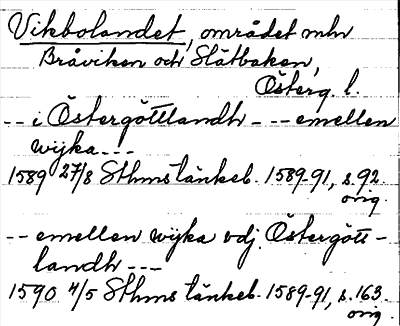 Vikbolandet, området mln
Bråviken och Slätbaken,
Österg. l.
-- i Östergöttlandh - -- emellen
wijka - - -
1589 27/8 Sthms tänkeb. 1589-91, s. 92
orig.
-- emellen wijka vdj Östergött-
landh - - -
1590 4/5 Sthms tänkeb. 1589-91, s. 163.
orig.